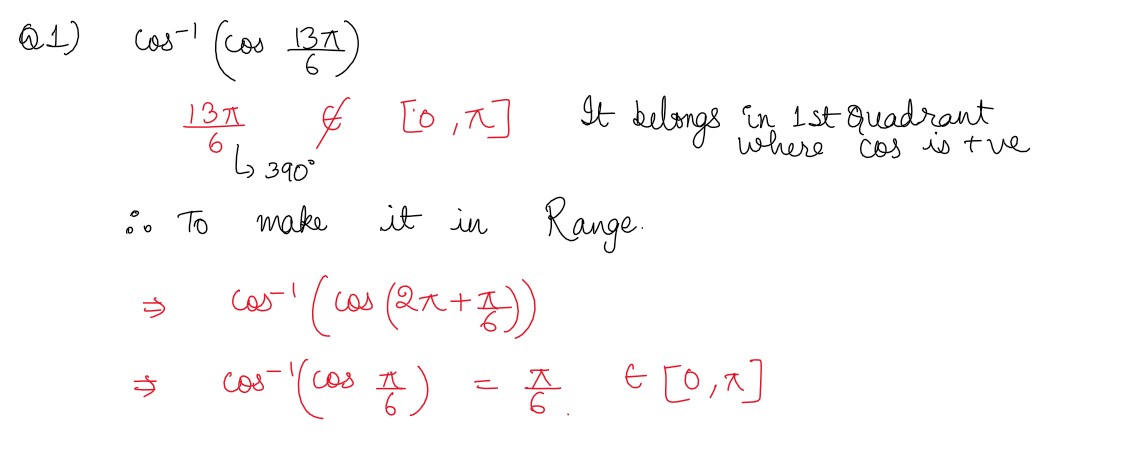 Q.1) cos⁻¹(cos 13π/6)
13π/6 ∉ [0, π] It belongs in 1st Quadrant
↳ 390° where cos is +ve
∴ To make it in Range.
⇒ cos⁻¹(cos(2π+π/6))
⇒ cos⁻¹(cos π/6) = π/6. ∈ [0, π]